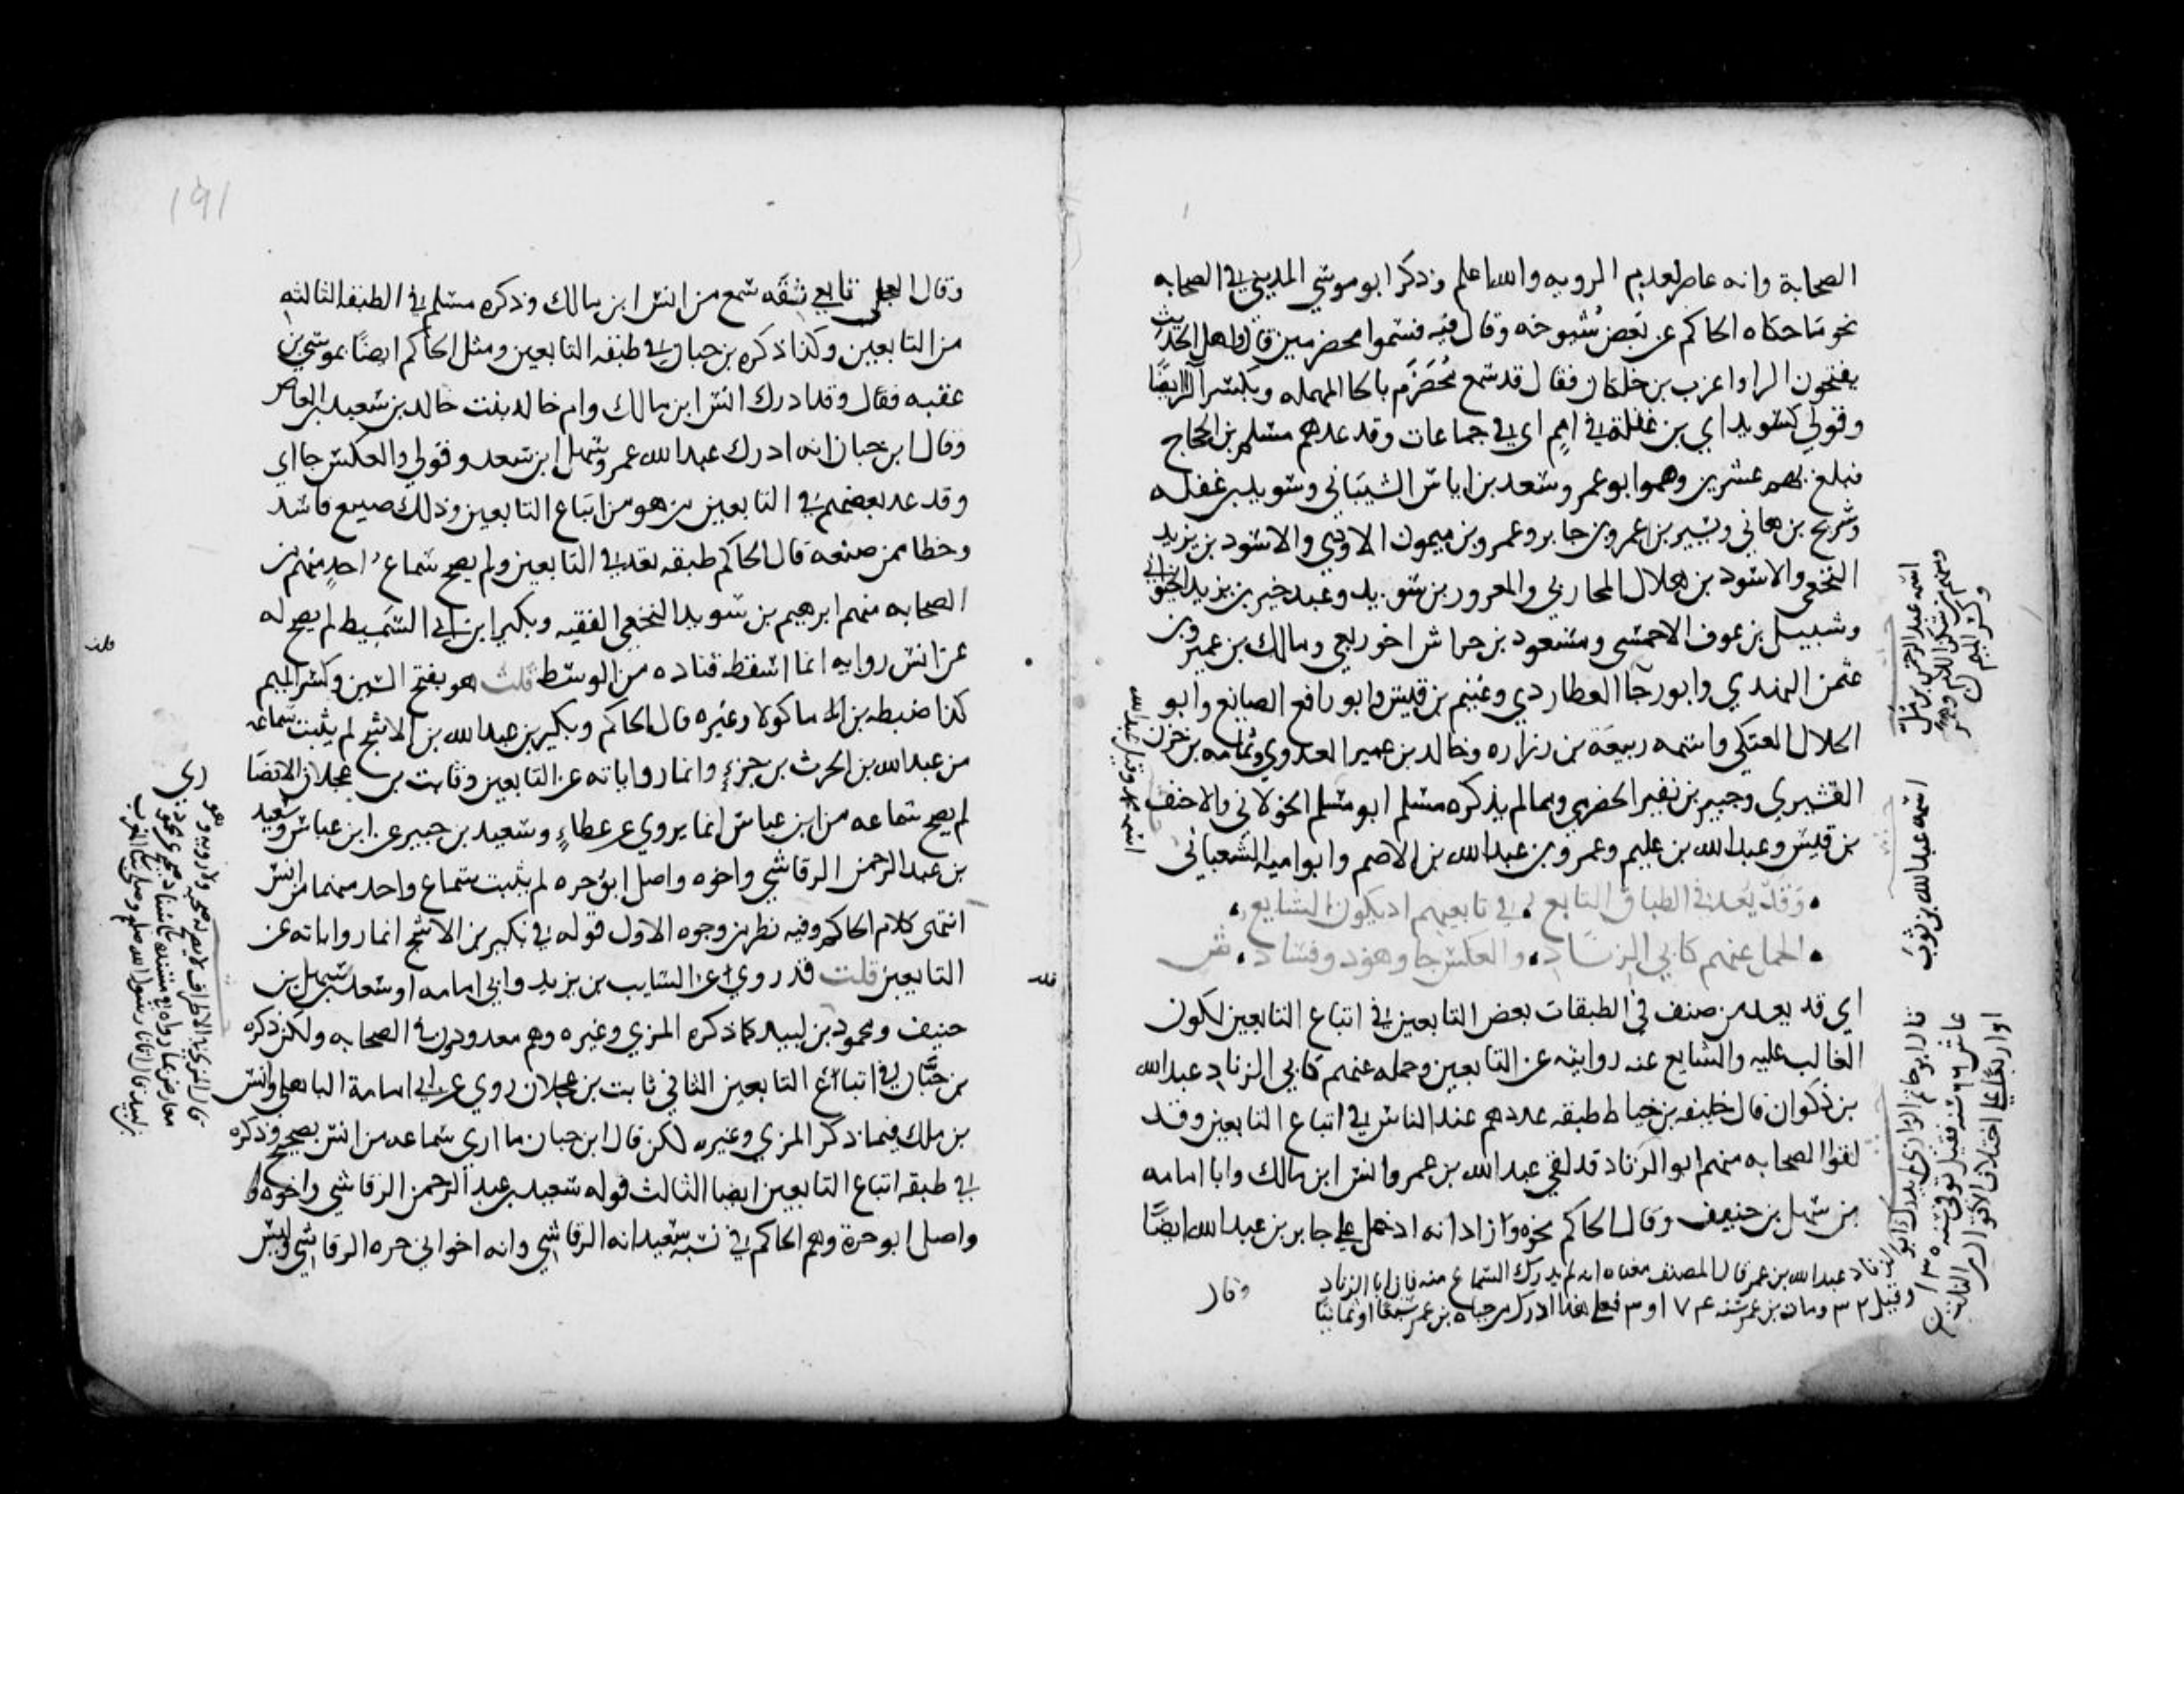 الصحابة وانه عاصر لعدم الرويه والله اعلم وذكر ابو موسي المديني في الصحابه
نحو ما حكاه الحاكم عن بعض شيوخه وقال فيه فسموا محضرمين قال واهل الحديث
يفتحون الرا واعزب بن خلكان فقال قد سمع مُحَضرَم بالحا المهمله وبكسر الرا ايضًا
وقولي كسويد اي بن غفلة في امم اي في جماعات وقد عدهم مسلم بن الحجاج
فبلغ بهم عشرين وهم ابو عمرو سعد بن اياس الشيباني وسويد بن غفله
وشريح بن هاني ويسير بن عمرو بن جابر وعمرو بن ميمون الاودي والاسود بن يزيد
النخعي والاسود بن هلال المحاربي والمعرور بن سويد وعبد خير بن يزيد الخيواني
وشبيل بن عوف الاحمسي ومسعود بن حراش اخو ربعي ومالك بن عمير وبن
عثمن النهدي وابو رجا العطاردي وغنيم بن قيس وابو رافع الصايغ وابو
الحلال العتكي واسمه ربيعة بن زراره وخالد بن عمير العدوي وثمامه بن حزن
القشيري وجبير بن نفير الحضرمي ومما لم يذكره مسلم ابو مسلم الخولاني والاحنف
بن قيس وعبد الله بن عليم وعمرو بن عبد الله بن الاصم وابو اميه الشعباني
وَقَدْ يُعَد في الطباق التابع في تابعيهم اذ يكون الشايع
الحمل عنهم كابي الزنَاد والعكس جا وهو ذو فساد ش
اي قد يعد من صنف في الطبقات بعض التابعين في اتباع التابعين لكون
الغالب عليه والشايع عنه روايته عن التابعين وحمله عنهم كابي الزناد عبد الله
بن ذكوان قال خليفه بن خياط طبقه عددهم عند الناس في اتباع التابعين وقد
لقوا الصحابه منهم ابو الزناد قد لقي عبد الله بن عمر وانس ابن مالك وابا امامه
بن سهل بن حنيف وقال الحاكم نحوه وزاد انه ادخل علي جابر بن عبد الله ايضًا
وقال
اسمه عبد الرحمن بن مل
ومنهم من
وكسر الميم
اسمه عبد الله بن ثوب
قال ابو حاتم الرازي لم يدرك ابو
الزناد عبد الله بن عمر قال المصنف معناه انه لم يدرك السماع منه فان ابا الزناد
عاش ٦٦ سنه فقيل توفي سنه
وقيل ٣٢ ومات بن عمر سنه ٧٤ او ٣ فعلي هذا ادرك من حياه بن عمر سبعا او ثمانيا
او اربعا علي اختلاف الاقوال
قلت
وقال العجلي تابعي ثقه سمع من انس ابن مالك وذكره مسلم في الطبقه الثالثه
من التابعين وكذا ذكره بن حبان في طبقه التابعين ومثل الحاكم ايضًا بموسي بن
عقبه فقال وقد ادرك انس ابن مالك وام خالد بنت خالد بن سعيد بن العاص
وقال ابن حبان انه ادرك عبد الله عمر وسهل ابن سعد وقولي والعكس جا اي
وقد عد بعضهم في التابعين من هو من اتباع التابعين وذلك صنيع فاسد
وخطا ممن صنعه قال الحاكم طبقه تعد في التابعين ولم يصح سماع احدٍ منهم من
الصحابه منهم ابرهيم بن سويد النخعي الفقيه وبكير ابن ابي السَّميط لم يصح له
عن انس روايه انما اسقط قتاده من الوسط قلت هو بفتح السين وكسر الميم
كذا ضبطه بن ماكولا وغيره قال الحاكم وبكير بن عبد الله بن الاشج لم يثبت سماعه
من عبد الله بن الحرث بن جزءٍ وانما رواياته عن التابعين وثابت بن عجلان الانصا
ري
لم يصح سماعه من ابن عباس انما يروي عن عطاءٍ وسعيد بن جبير عن ابن عباس وسعيد
بن عبد الرحمن الرقاشي واخوه واصل ابو حره لم يثبت سماع واحد منهما من انس
انتهى كلام الحاكم وفيه نظر من وجوه الاول قوله في بكير بن الاشج انما رواياته عن
التابعين قلت قد روي عن السايب بن يزيد وابي امامه اسعد بن سهل بن
حنيف ومحمود بن لبيد كما ذكره المزي وغيره وهم معدودون في الصحابه ولكن ذكره
بن حبَّان في اتباع التابعين الثاني ثابت بن عجلان روي عن ابي امامة الباهلي وانس
بن ملك فيما ذكر المزي وغيره لكن قال ابن حبان ما اري سماعه من انس بصحيح وذكره
في طبقه اتباع التابعين ايضا الثالث قوله سعيد بن عبد الرحمن الرقاشي واخوه
واصل ابو حرة وهم الحاكم في نسبه سعيد انه الرقاشي وانه اخو ابي حره الرقاشي وليس
قلت
قال المزي في الاطراف لا يصح له صحبه ولا رويه وهو
معارض بما رواه في مسنده باسناد صحيح عن محمود
بن لبيد قال اتانا رسول الله صلعم وصلي بنا المغرب
١٩١